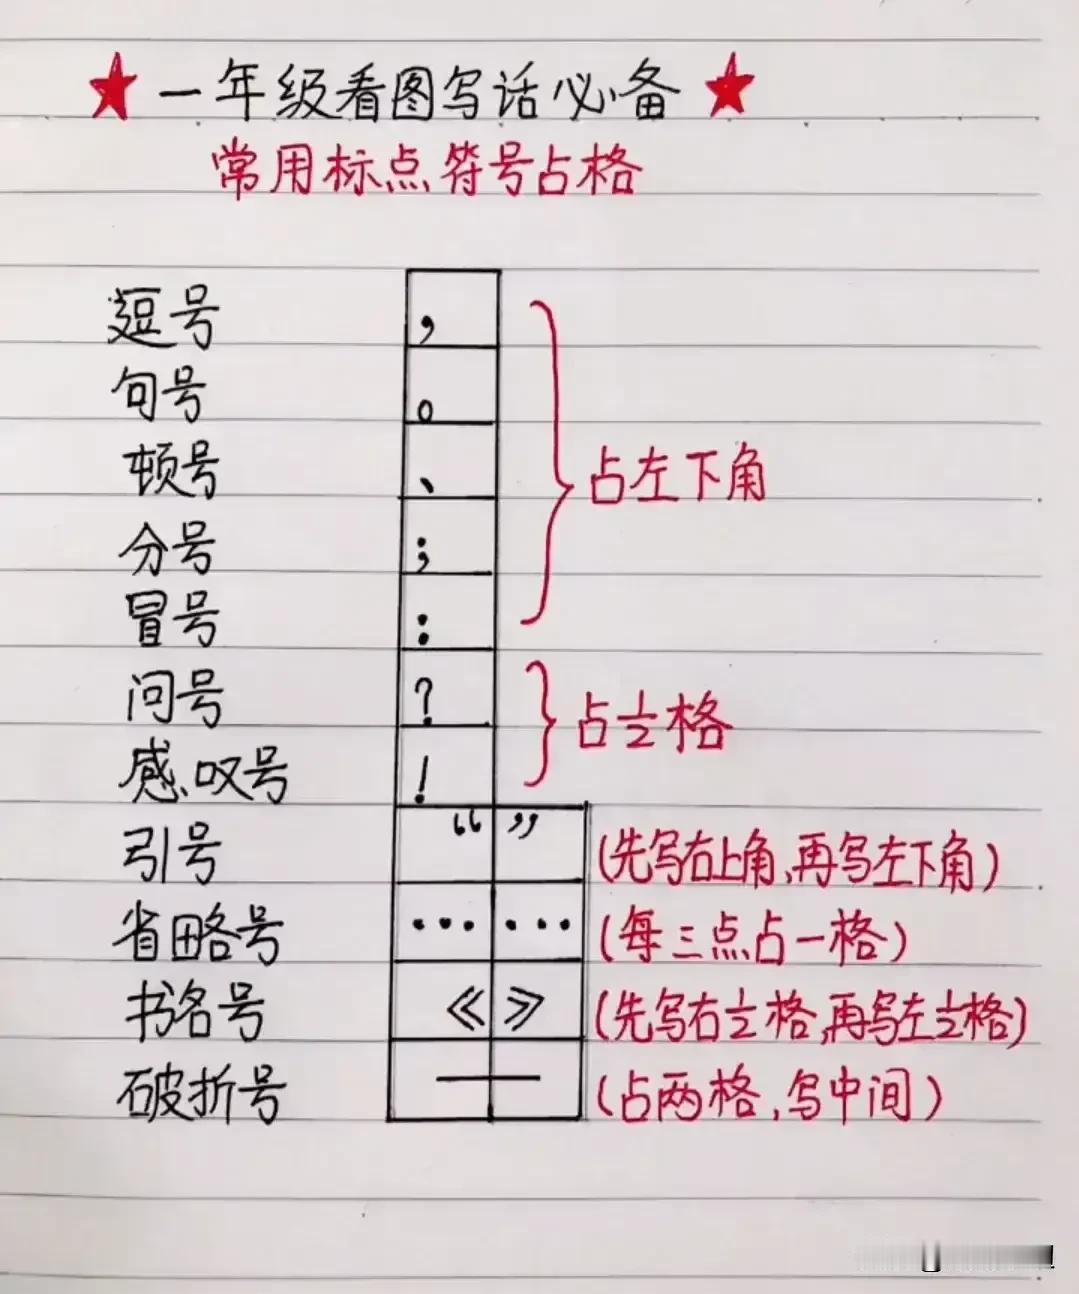 ★一年级看图写话必备★
常用标点符号占格
逗号 ，
句号 。
顿号 、
分号 ；
冒号 ：
占左下角
问号 ？
感叹号 ！
占½格
引号 “ ” (先写右上角,再写左下角)
省略号 ······ (每三点占一格)
书名号 《 》 (先写右½格,再写左½格)
破折号 — (占两格,写中间)